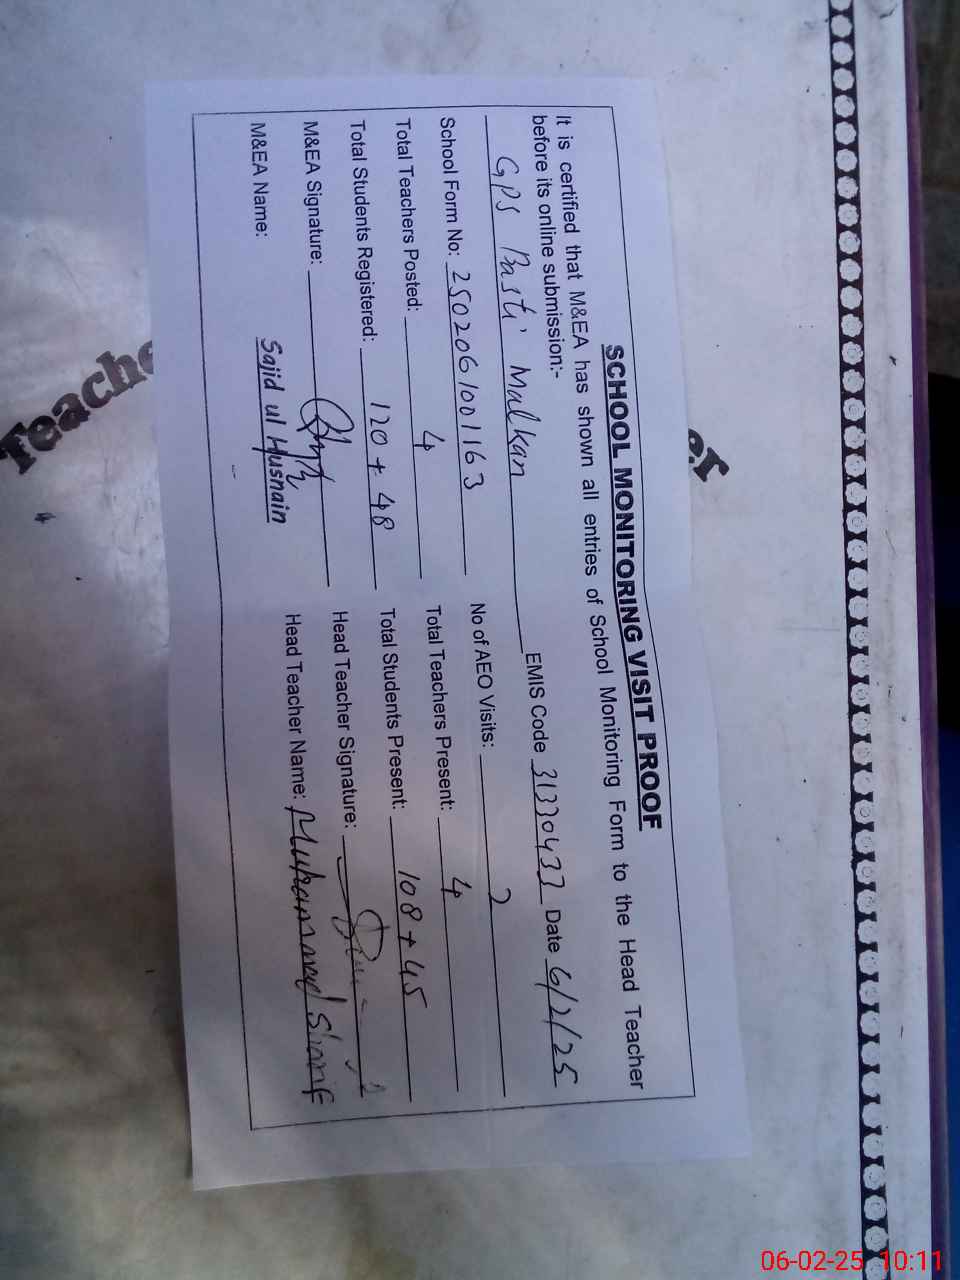 SCHOOL MONITORING VISIT PROOF
It is certified that M&EA has shown all entries of School Monitoring Form to the Head Teacher
before its online submission:-
GPS Basti Malkan EMIS Code 31330433 Date 6/2/25
School Form No: 2502061001163 No of AEO Visits: 2
Total Teachers Posted: 4 Total Teachers Present: 4
Total Students Registered: 120 + 48 Total Students Present: 108 + 45
M&EA Signature: Head Teacher Signature:
M&EA Name: Sajid ul Husnain Head Teacher Name: Muhammad Sharif
Teache
er
06-02-25 10:11